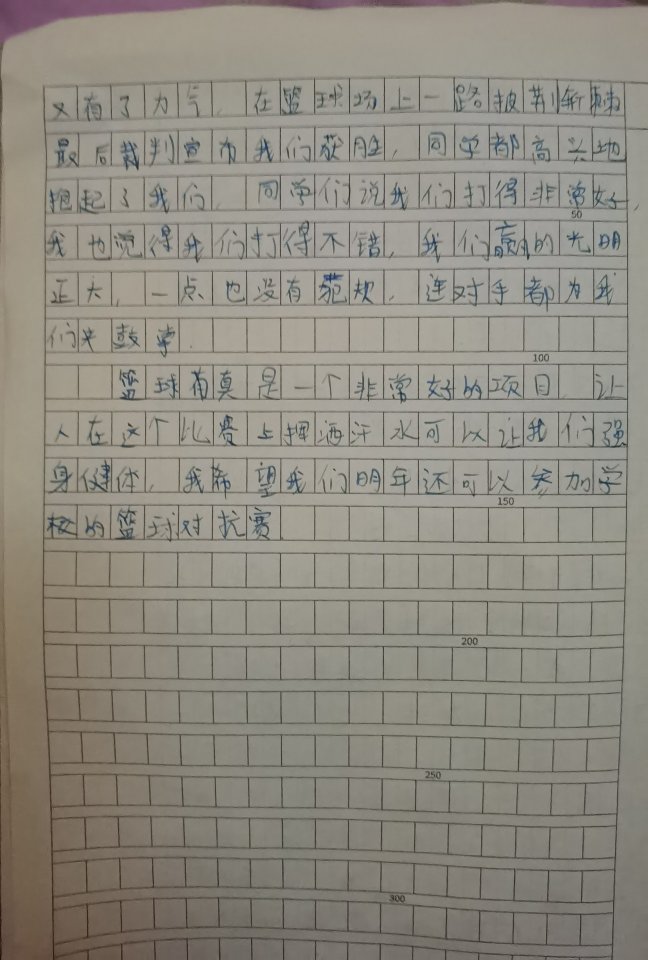 又有了力气，在篮球场上一路披荆斩棘
最后裁判宣布我们获胜，同学都高兴地
抱起了我们，同学们说我们打得非常好，
50
我也觉得我们打得不错，我们赢的光明
正大，一点也没有犯规，连对手都为我
们夹鼓掌.
100
篮球有真是一个非常好的项目，让
人在这个比赛上挥洒汗水可以让我们强
身健体，我希望我们明年还可以参加学
150
校的篮球对抗赛
200
250
300